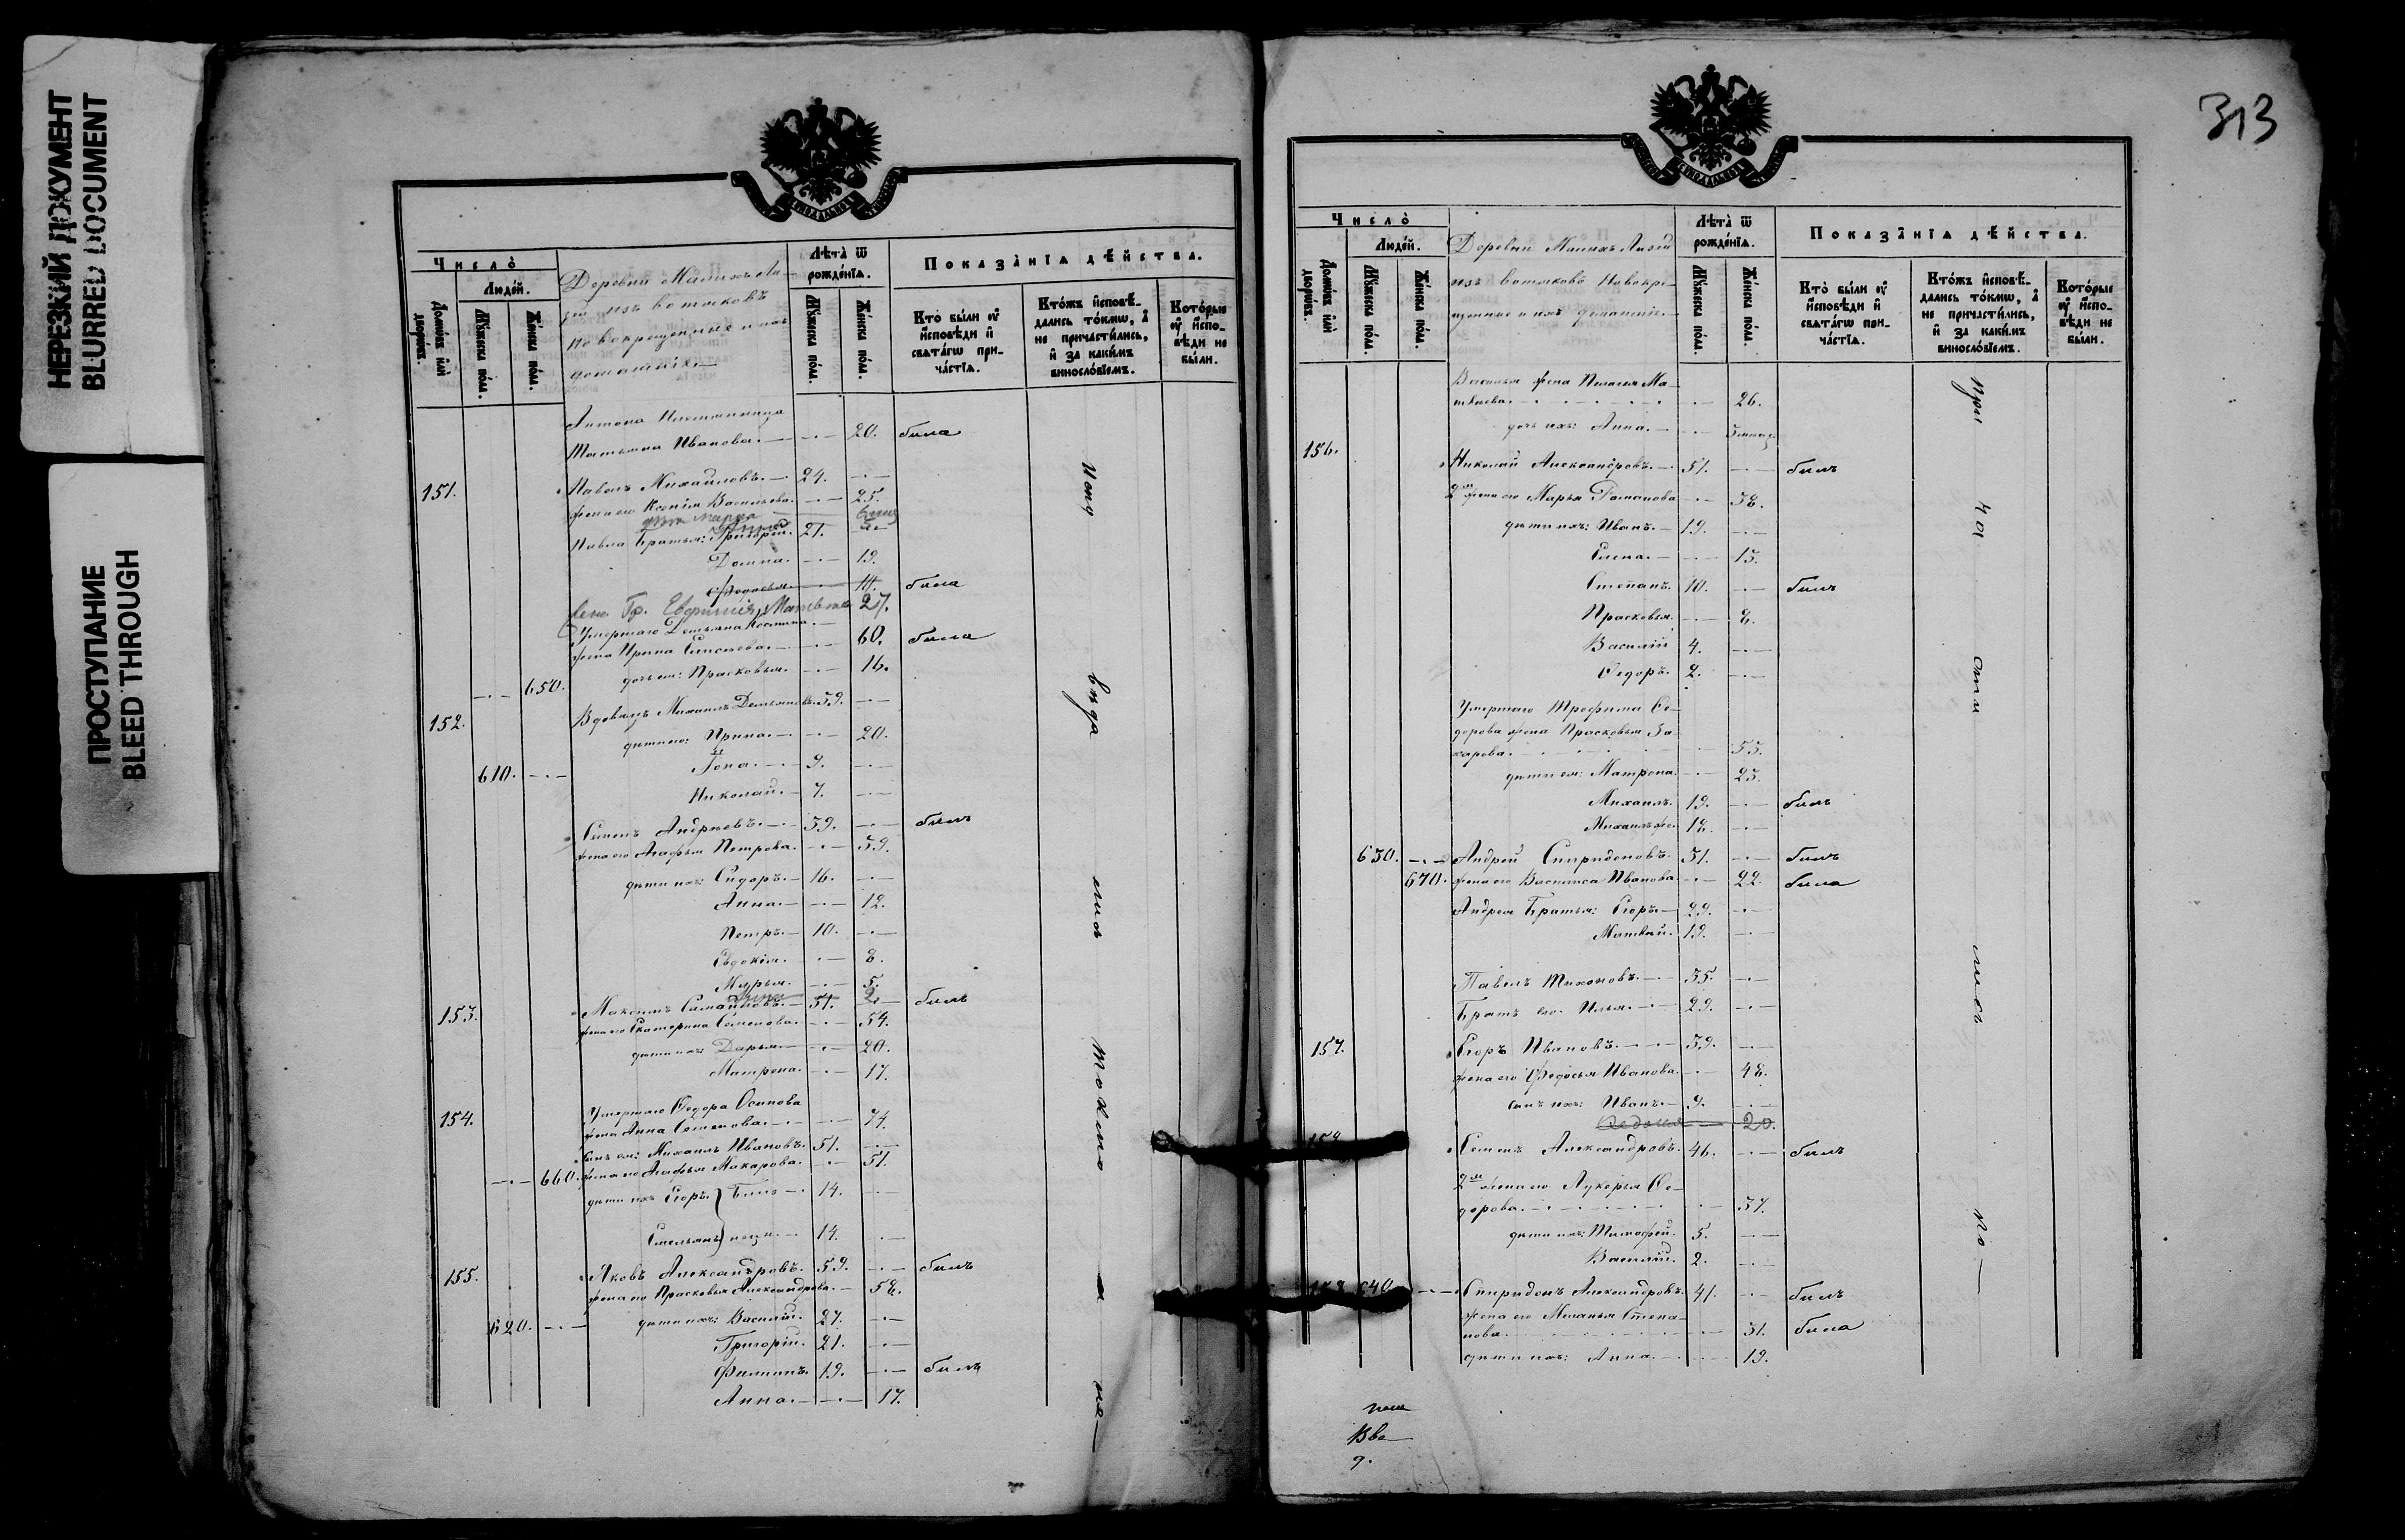 НЕРЕЗКИЙ ДОКУМЕНТ
BLURRED DOCUMENT
ПРОСТУПАНИЕ
BLEED THROUGH
Число̀
Людей.
Домѡвъ или дворѡвъ.
Мꙋжеска полꙋ.
Женска полꙋ.
Деревни
изъ вотяковъ
новокрещенные и ихъ
домашніе.
Лѣта ѿ рожденїѧ.
Мꙋжеска полꙋ.
Женска полꙋ.
Показанїѧ дѣйства.
Кто были ᲂу҆ исповѣди и свѧтагѡ причастїѧ.
Ктожъ исповѣдались токмѡ, а не причастились, и за какимъ винословїемъ.
Которые ᲂу҆ исповѣди не были.
Антона
Татьяна Иванова. 20. была
151. Павелъ Михайловъ. 24.
жена его Ксенія Васильева. 25.
Павла братья: Григорій. 21.
Домна. 19.
Федосья. 14. была
Евфимія Матвѣева 27.
Умершаго Демьяна
жена Ирина 60. была
дочь ея: Прасковья. 16.
650.
152. Вдовецъ Михаилъ Демьяновъ. 59.
дѣти его: Ирина. 20.
Iона. 9.
610.
Николай. 7.
Андреевъ. 39. былъ
жена его Агафья Петрова. 39.
дѣти ихъ: Сидоръ. 16.
Анна. 12.
Петръ. 10.
Евдокія. 8.
Марья. 5.
Анна 2.
153. Максимъ 51. былъ
жена его Екатерина Семенова. 54.
дѣти ихъ: Дарья. 20.
Матрона. 17.
154. Умершаго Ѳедора Осипова
жена Анна Семенова. 74.
сынъ ея: Михаилъ Ивановъ. 51.
660. жена его Агафья Макарова. 51.
дѣти ихъ Егоръ. } Близ- 14.
Емельянъ } нецы. 14.
155. Яковъ Александровъ. 59. былъ
жена его Прасковья Александрова. 58.
620. дѣти ихъ: Василій. 27.
Григорій. 21.
Филипъ. 19. былъ
Анна. 17.
токмо
313
Число̀
Людей.
Домѡвъ или дворѡвъ.
Мꙋжеска полꙋ.
Женска полꙋ.
Деревни
изъ вотяковъ новокре-
щенные и ихъ домашніе.
Лѣта ѿ рожденїѧ.
Мꙋжеска полꙋ.
Женска полꙋ.
Показанїѧ дѣйства.
Кто были ᲂу҆ исповѣди и свѧтагѡ причастїѧ.
Ктожъ исповѣдались токмѡ, а не причастились, и за какимъ винословїемъ.
Которые ᲂу҆ исповѣди не были.
Василья жена Пелагея Ма-
твѣева. 26.
дочь ихъ: Анна.
156. Николай Александровъ. 51. былъ
2я жена его Марья Романова 38.
дѣти ихъ: Иванъ. 19.
Елена. 15.
Степанъ. 10. былъ
Прасковья. 8.
Василій 4.
Ѳедоръ. 2.
Умершаго Трофима Ѳе-
дорова жена Прасковья За-
харова. 55.
дѣти ея: Матрона. 25.
Михаилъ. 19. былъ
Михаилъ же. 18.
630. Андрей Спиридоновъ. 31. былъ
670. жена его Василиса Иванова. 22. была
Андрея братья: Егоръ. 29.
Матвѣй. 19.
Павелъ Тихоновъ. 35.
Братъ его Илья. 29.
157. Егоръ Ивановъ. 39.
жена его Федосья Иванова. 48.
сынъ ихъ: Иванъ. 9.
20.
158. Семенъ Александровъ. 46. былъ
2я жена его Лукерья Ѳе-
дорова. 37.
дѣти ихъ: Тимофей. 5.
Василій. 2.
640. Спиридонъ Александровъ. 41. былъ
жена его Меланья Степа-
нова. 51. была
дѣти ихъ: Анна. 19.
При
ча
сти
лись
по